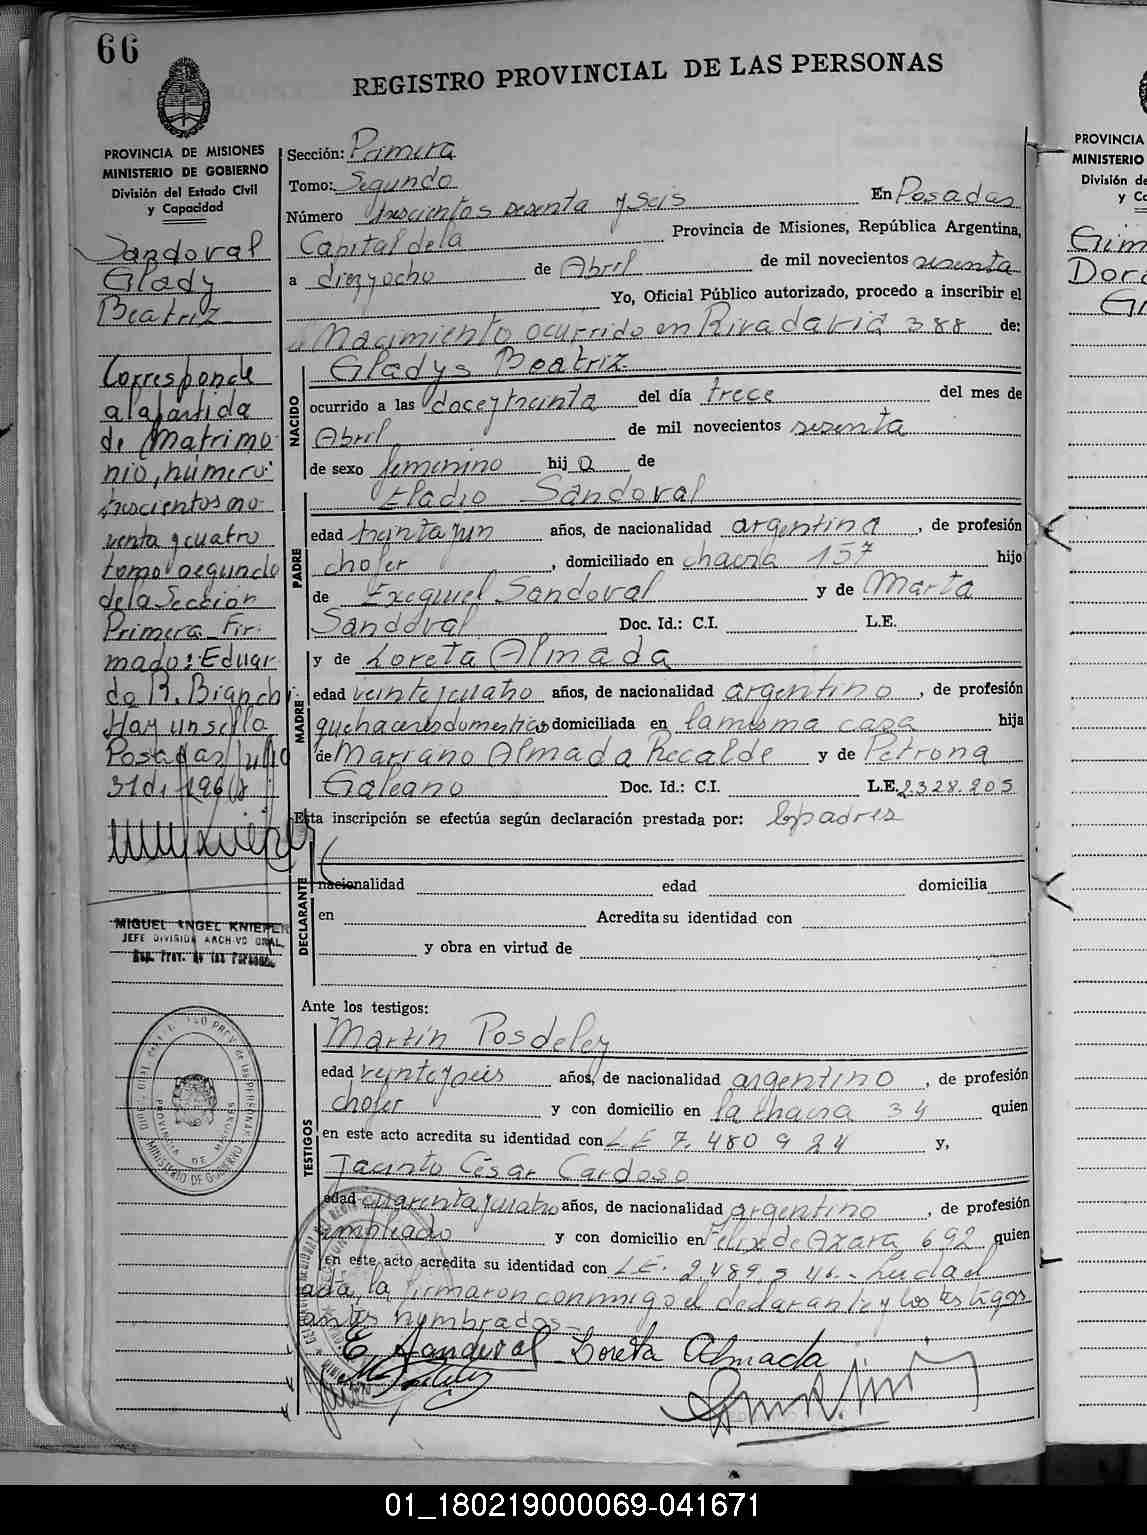 66
REGISTRO PROVINCIAL DE LAS PERSONAS
PROVINCIA DE MISIONES
MINISTERIO DE GOBIERNO
División del Estado Civil
y Capacidad
Sandoval
Glady
Beatriz
Corresponde
a la partida
de Matrimo-
nio, numero
trescientos no-
venta y cuatro
tomo segundo
de la Sección
Primera Fir-
mado: Eduar
do R. Bianchi
Hay un sello
Posadas Julio
31 de 196
MIGUEL ANGEL KNIEPER
JEFE DIVISION ARCHIVO GRAL.
Reg. Prov. de las Personas
MINISTERIO DE GOBIERNO
PROVINCIA DE MISIONES
Sección: Primera
Tomo: Segundo
Número trescientos sesenta y seis En Posadas
Capital de la Provincia de Misiones, República Argentina,
a diez y ocho de Abril de mil novecientos sesenta
Yo, Oficial Público autorizado, procedo a inscribir el
Nacimiento ocurrido en Rivadavia 388 de:
NACIDO
Gladys Beatriz
ocurrido a las doce y treinta del día trece del mes de
Abril de mil novecientos sesenta
de sexo femenino hij a de
PADRE
Eladio Sandoval
edad treinta y un años, de nacionalidad argentina, de profesión
chofer, domiciliado en chacra 157 hijo
de Exequiel Sandoval y de Marta
Sandoval Doc. Id.: C.I. L.E.
MADRE
y de Loreta Almada
edad veinte y cuatro años, de nacionalidad argentino, de profesión
quehaceres domesticos domiciliada en la misma casa hija
de Mariano Almada Recalde y de Petrona
Galeano Doc. Id.: C.I. L.E. 2.328.205
Esta inscripción se efectúa según declaración prestada por: los padres
DECLARANTE
nacionalidad edad domicilia
en Acredita su identidad con
y obra en virtud de
Ante los testigos:
TESTIGOS
Martín Posdeley
edad veinte y seis años, de nacionalidad argentino, de profesión
chofer y con domicilio en la chacra 34 quien
en este acto acredita su identidad con L E 7.480924 y,
Jacinto César Cardoso
edad cuarenta y cuatro años, de nacionalidad argentino, de profesión
empleado y con domicilio en Felix de Azara 692 quien
en este acto acredita su identidad con L.E. 2489.546.- Leida el
acta, la firmaron conmigo el declarante y los testigos
antes nombrados-
E. Sandoval Loreta Almada
PROVINCIA
MINISTERIO
División de
y Ca
Gim
Dora
01_180219000069-041671